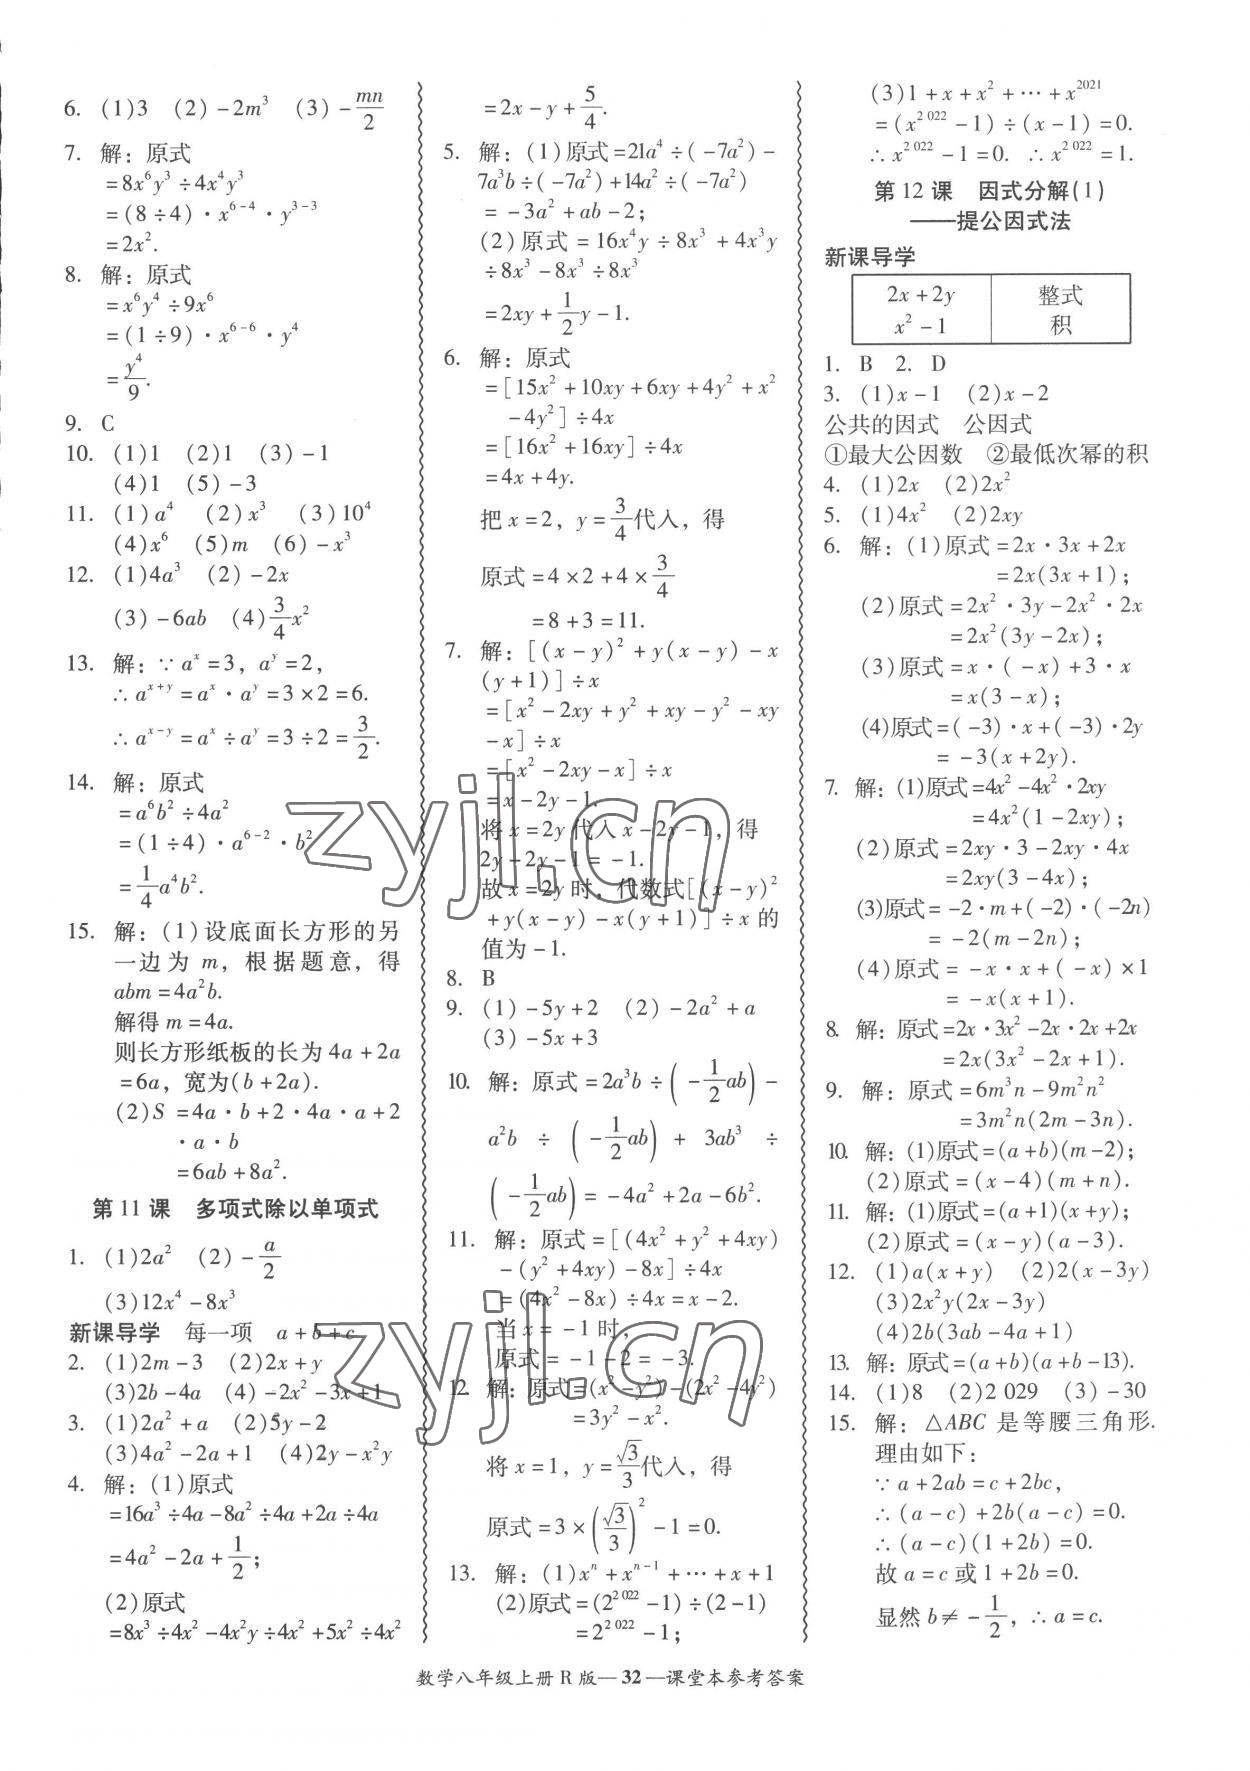 6. (1)3 (2)-2m³ (3)-mn/2
7. 解：原式
=8x⁶y³÷4x⁴y³
=(8÷4)·x⁶⁻⁴·y³⁻³
=2x².
8. 解：原式
=x⁶y⁴÷9x⁶
=(1÷9)·x⁶⁻⁶·y⁴
=y⁴/9.
9. C
10. (1)1 (2)1 (3)-1
(4)1 (5)-3
11. (1)a⁴ (2)x³ (3)10⁴
(4)x⁶ (5)m (6)-x³
12. (1)4a³ (2)-2x
(3)-6ab (4)3/4x²
13. 解：∵aˣ=3，aʸ=2，
∴aˣ⁺ʸ=aˣ·aʸ=3×2=6.
∴aˣ⁻ʸ=aˣ÷aʸ=3÷2=3/2.
14. 解：原式
=a⁶b²÷4a²
=(1÷4)·a⁶⁻²·b²
=1/4a⁴b².
15. 解：(1)设底面长方形的另
一边为 m，根据题意，得
abm=4a²b.
解得 m=4a.
则长方形纸板的长为4a+2a
=6a，宽为(b+2a).
(2)S=4a·b+2·4a·a+2
·a·b
=6ab+8a².
第 11 课 多项式除以单项式
1. (1)2a² (2)-a/2
(3)12x⁴-8x³
新课导学 每一项 a+b+c
2. (1)2m-3 (2)2x+y
(3)2b-4a (4)-2x²-3x+1
3. (1)2a²+a (2)5y-2
(3)4a²-2a+1 (4)2y-x²y
4. 解：(1)原式
=16a³÷4a-8a²÷4a+2a÷4a
=4a²-2a+1/2；
(2)原式
=8x³÷4x²-4x²y÷4x²+5x²÷4x²
=2x-y+5/4.
5. 解：(1)原式=21a⁴÷(-7a²)-
7a³b÷(-7a²)+14a²÷(-7a²)
=-3a²+ab-2；
(2)原式=16x⁴y÷8x³+4x³y
÷8x³-8x³÷8x³
=2xy+1/2y-1.
6. 解：原式
=[15x²+10xy+6xy+4y²+x²
-4y²]÷4x
=[16x²+16xy]÷4x
=4x+4y.
把x=2，y=3/4代入，得
原式=4×2+4×3/4
=8+3=11.
7. 解：[(x-y)²+y(x-y)-x
(y+1)]÷x
=[x²-2xy+y²+xy-y²-xy
-x]÷x
=[x²-2xy-x]÷x
=x-2y-1.
将x=2y代入x-2y-1，得
2y-2y-1=-1.
故x=2y时，代数式[(x-y)²
+y(x-y)-x(y+1)]÷x的
值为-1.
8. B
9. (1)-5y+2 (2)-2a²+a
(3)-5x+3
10. 解：原式=2a³b÷(-1/2ab)-
a²b÷(-1/2ab)+3ab³÷
(-1/2ab)=-4a²+2a-6b².
11. 解：原式=[(4x²+y²+4xy)
-(y²+4xy)-8x]÷4x
=(4x²-8x)÷4x=x-2.
当x=-1时，
原式=-1-2=-3.
12. 解：原式=(x²-y²)-(2x²-4y²)
=3y²-x².
将x=1，y=√3/3代入，得
原式=3×(√3/3)²-1=0.
13. 解：(1)xⁿ+xⁿ⁻¹+…+x+1
(2)原式=(2²⁰²²-1)÷(2-1)
=2²⁰²²-1；
(3)1+x+x²+…+x²⁰²¹
=(x²⁰²²-1)÷(x-1)=0.
∴x²⁰²²-1=0. ∴x²⁰²²=1.
第 12 课 因式分解(1)
——提公因式法
新课导学
2x+2y 整式
x²-1 积
1. B 2. D
3. (1)x-1 (2)x-2
公共的因式 公因式
①最大公因数 ②最低次幂的积
4. (1)2x (2)2x²
5. (1)4x² (2)2xy
6. 解：(1)原式=2x·3x+2x
=2x(3x+1)；
(2)原式=2x²·3y-2x²·2x
=2x²(3y-2x)；
(3)原式=x·(-x)+3·x
=x(3-x)；
(4)原式=(-3)·x+(-3)·2y
=-3(x+2y).
7. 解：(1)原式=4x²-4x²·2xy
=4x²(1-2xy)；
(2)原式=2xy·3-2xy·4x
=2xy(3-4x)；
(3)原式=-2·m+(-2)·(-2n)
=-2(m-2n)；
(4)原式=-x·x+(-x)×1
=-x(x+1).
8. 解：原式=2x·3x²-2x·2x+2x
=2x(3x²-2x+1).
9. 解：原式=6m³n-9m²n²
=3m²n(2m-3n).
10. 解：(1)原式=(a+b)(m-2)；
(2)原式=(x-4)(m+n).
11. 解：(1)原式=(a+1)(x+y)；
(2)原式=(x-y)(a-3).
12. (1)a(x+y) (2)2(x-3y)
(3)2x²y(2x-3y)
(4)2b(3ab-4a+1)
13. 解：原式=(a+b)(a+b-13).
14. (1)8 (2)2 029 (3)-30
15. 解：△ABC 是等腰三角形.
理由如下：
∵a+2ab=c+2bc，
∴(a-c)+2b(a-c)=0.
∴(a-c)(1+2b)=0.
故a=c或1+2b=0.
显然b≠-1/2，∴a=c.
数学八年级上册 R 版—32—课堂本参考答案
zyjl.cn
zyjl.cn